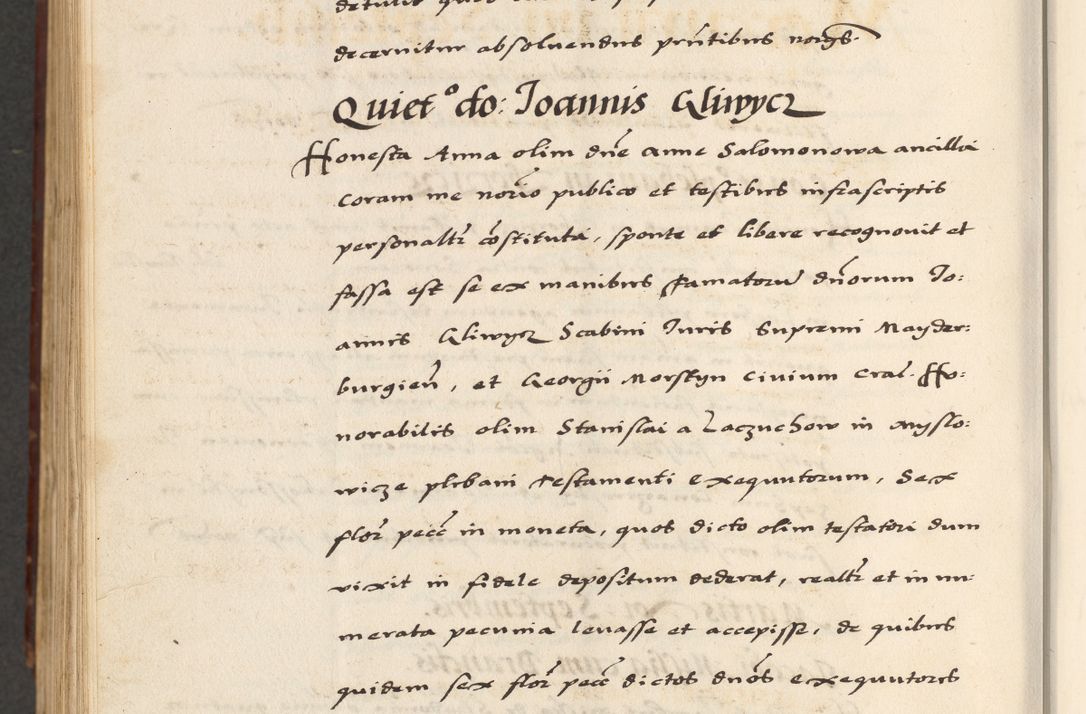 decernitur absoluendus prntibus norgs.
Quiet.º do: Joannis Gliwycz
Honesta Anna olim dne Anne Salomonowa ancilla
coram me norio publico et testibus infrascriptis
personaltr cōstituta, sponte et libere recognouit et
fassa est se ex manibus Famatoru dnorum Jo:
annis Gliwycz Scabini Juris Supremi Mayder:
burgien, et Georgii Morskyn ciuium Crac. Ho:
norabilis olim Stanislai a Laczuchow in Myslo:
wicze plebani testamenti exequutorum, Sex
flor pecc in moneta, quos dicto olim testatori dum
vixit in fidele depositum dederat, realtr et in nu:
merata pecunia leuasse et accepisse, de quibus
quidem sex flor pecc dictos dnos exequutores